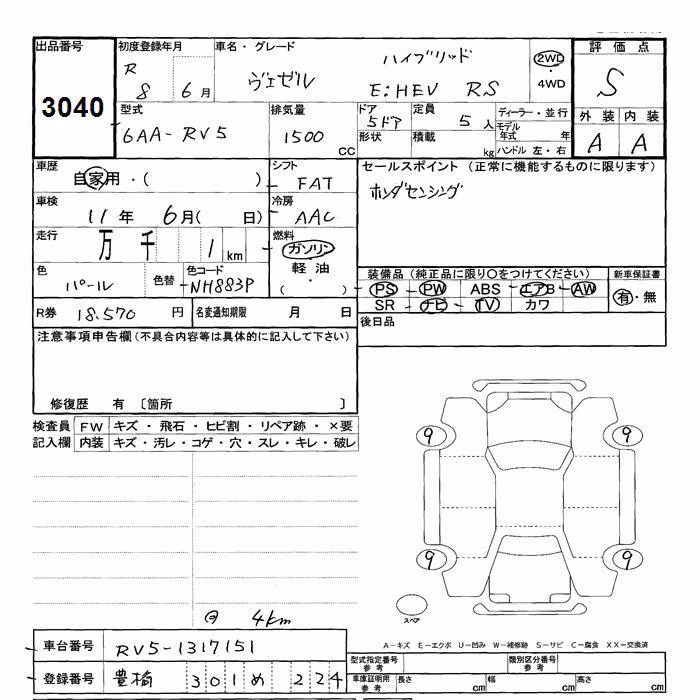 出品番号
3040
初度登録年月
R 8 6月
車名・グレード
ヴェゼル ハイブリッド
E:HEV RS
2WD
・4WD
評価点
S
外装 内装
A A
型式
6AA-RV5
排気量
1500 CC
ドア
5ドア
定員
5人
形状
積載
kg
ディーラー・並行
モデル年式 年
ハンドル 左・右
車歴
自家用・( )
シフト
FAT
車検
11年 6月( 日)
冷房
AAC
走行
万 千 1 km
燃料
ガソリン
軽油
( )
色
パール
色替
色コード
NH883P
R券 18.570 円
名変通知期限 月 日
セールスポイント (正常に機能するものに限ります)
ホンダセンシング
装備品(純正品に限り○をつけてください)
PS PW ABS エアB AW
SR ナビ TV カワ
新車保証書
有・無
後日品
注意事項申告欄(不具合内容等は具体的に記入して下さい)
修復歴 有 〔箇所 〕
検査員記入欄
FW キズ・飛石・ヒビ割・リペア跡・×要
内装 キズ・汚レ・コゲ・穴・スレ・キレ・破レ
9 9
9 9
スペア
4km
A-キズ E-エクボ U-凹み W-補修跡 S-サビ C-腐食 XX-交換済
車台番号 RV5-1317151
登録番号 豊橋 301 め 224
型式指定番号 参考
類別区分番号 参考
車庫証明用 参考 長さ cm 幅 cm 高さ cm